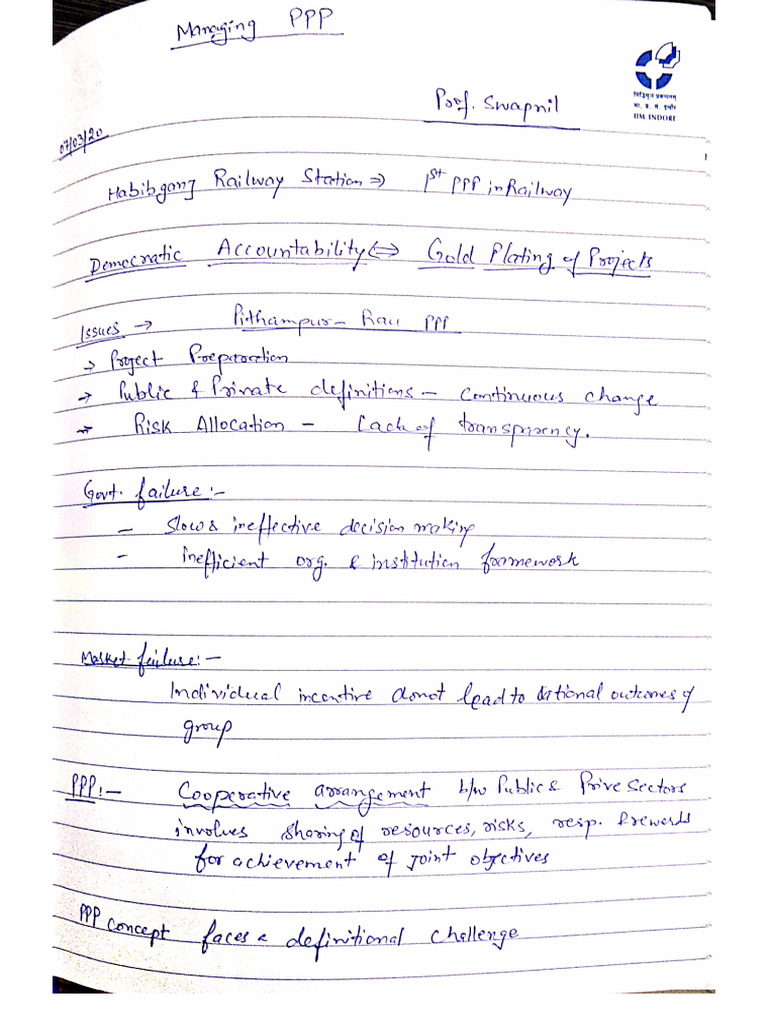 Managing PPP
Prof. Swapnil
सिद्धिमूलं प्रबन्धनम्
भा. प्र. सं. इन्दौर
IIM INDORE
07/03/20
Habibganj Railway Station ⇒ 1st PPP in Railway
Democratic Accountability ⇔ Gold Plating of Projects
Issues → Pithampur - Rau PPP
→ Project Preparation
→ Public & Private definitions – Continuous change
→ Risk Allocation – Lack of transparency.
Govt. failure :-
- Slow & ineffective decision making
- inefficient org. & institution framework
Market failure :-
Individual incentive donot lead to rational outcomes of
group
PPP :- Cooperative arrangement b/w Public & Prive Sectors
involves sharing of resources, risks, resp. & rewards
for achievement of joint objectives
PPP Concept faces a definitional challenge